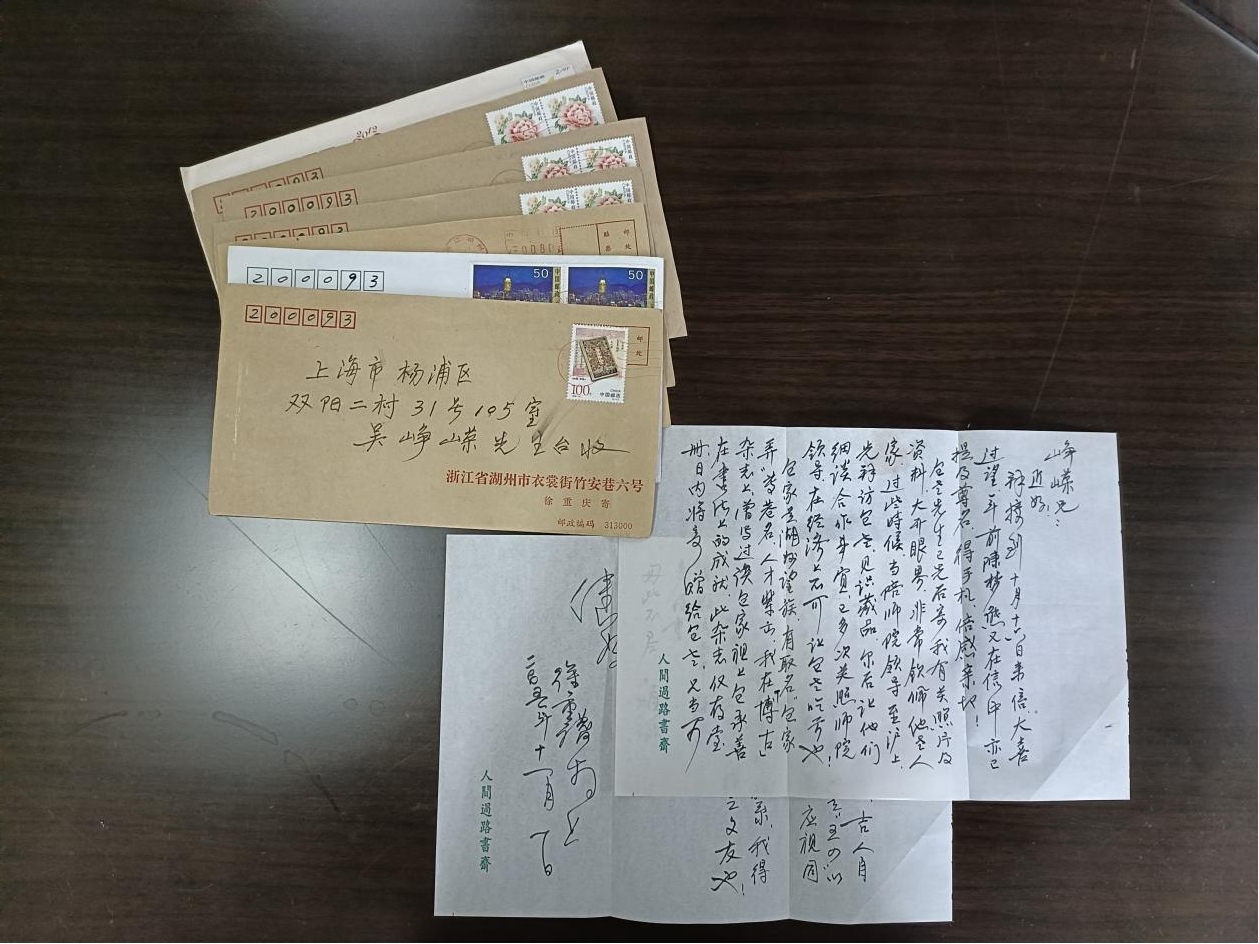 中国邮政
200093
200093
50
中国邮政
50
中国邮政
200093
邮
处
100分
中国邮政
上海市杨浦区
双阳二村31号105室
吴峥嵘先生台收
浙江省湖州市衣裳街竹安巷六号
徐重庆寄
邮政编码 313000
峥嵘兄：
近好！
拜接到十月十六日来信，大喜
过望。年前陈梦熊又在信中亦已
提及尊名，得手札，倍感亲切！
包老先生已先后寄我有关照片及
资料，大开眼界，非常钦佩他老人
家。过些时候，当陪师院领导至沪上，
先拜访包老，见识藏品，尔后让他们
细谈合作事宜。已多次关照师院
领导，在经济上不可让包老吃亏也！
包家是湖州望族，有取名“包家
弄”为巷名，人才辈出。我在“博古”
杂志上，曾写过谈包家祖上包承善
在书法上的成就，此杂志仅存壹
册，日内将复
赠给包老，兄当可
人間過路書齋
应视同
系，我得
之文友也！
徐重庆
十一月一日
人間過路書齋